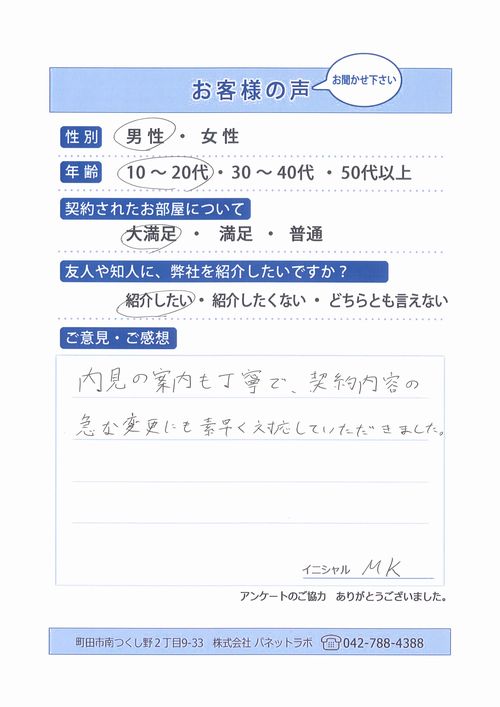 お客様の声
お聞かせ下さい
性別
男性 ・ 女性
年齢
10 ～ 20代 ・ 30 ～ 40代 ・ 50代以上
契約されたお部屋について
大満足 ・ 満足 ・ 普通
友人や知人に、弊社を紹介したいですか？
紹介したい ・ 紹介したくない ・ どちらとも言えない
ご意見・ご感想
内見の案内も丁寧で、契約内容の
急な変更にも素早く対応していただきました。
イニシャル MK
アンケートのご協力 ありがとうございました。
町田市南つくし野２丁目9-33 株式会社 パネットラボ 042-788-4388